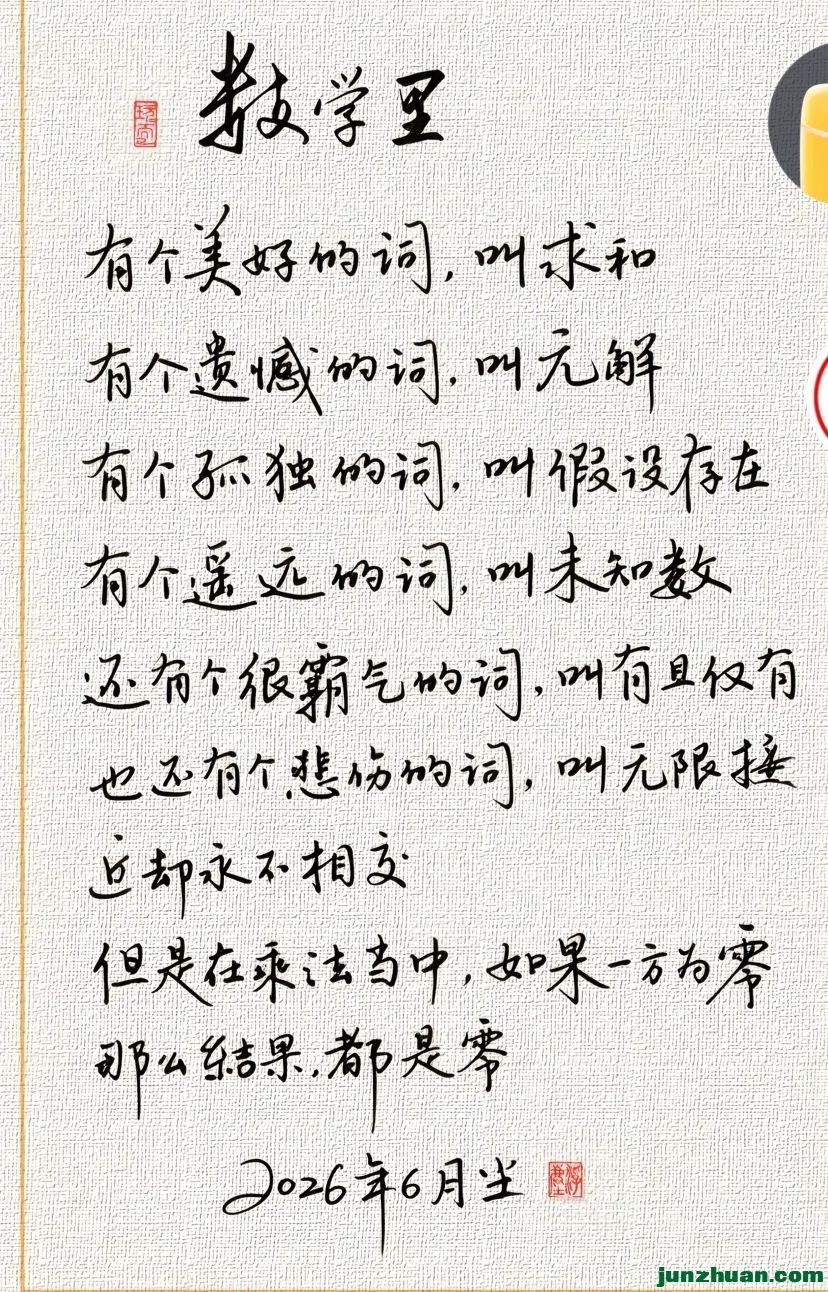 数学里
有个美好的词,叫求和
有个遗憾的词,叫无解
有个孤独的词,叫假设存在
有个遥远的词,叫未知数
还有个很霸气的词,叫有且仅有
也还有个悲伤的词,叫无限接
近却永不相交
但是在乘法当中,如果一方为零
那么结果,都是零
2026年6月尘
junzhuan.com